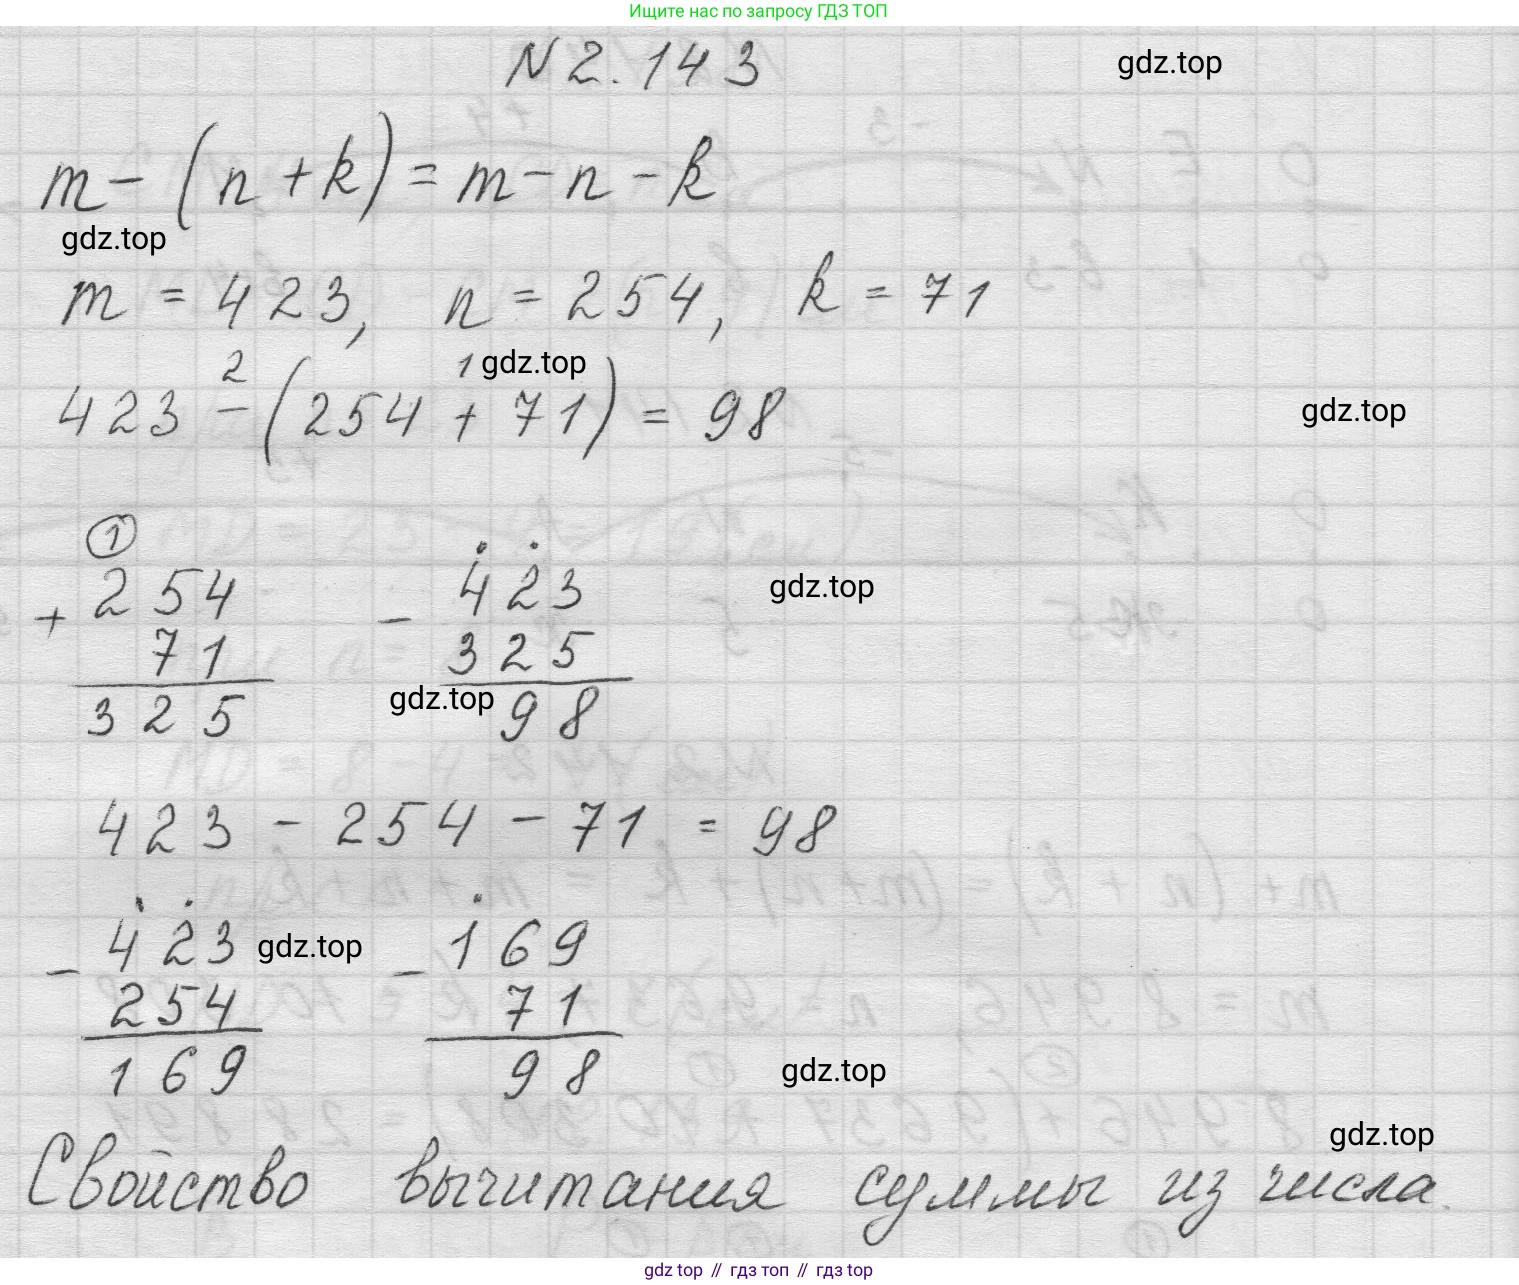 Ищите нас по запросу ГДЗ ТОП
N 2.143
gdz.top
m - (n + k) = m - n - k
gdz.top
m = 423, n = 254, k = 71
2 1 gdz.top
423 - (254 + 71) = 98
gdz.top
1
+ 254 - 423
gdz.top
71 325
325 98
gdz.top
423 - 254 - 71 = 98
- 423 gdz.top - 169
254 71
169 98
gdz.top
gdz.top
Свойство вычитания суммы из числа.
gdz top // гдз топ // гдз top